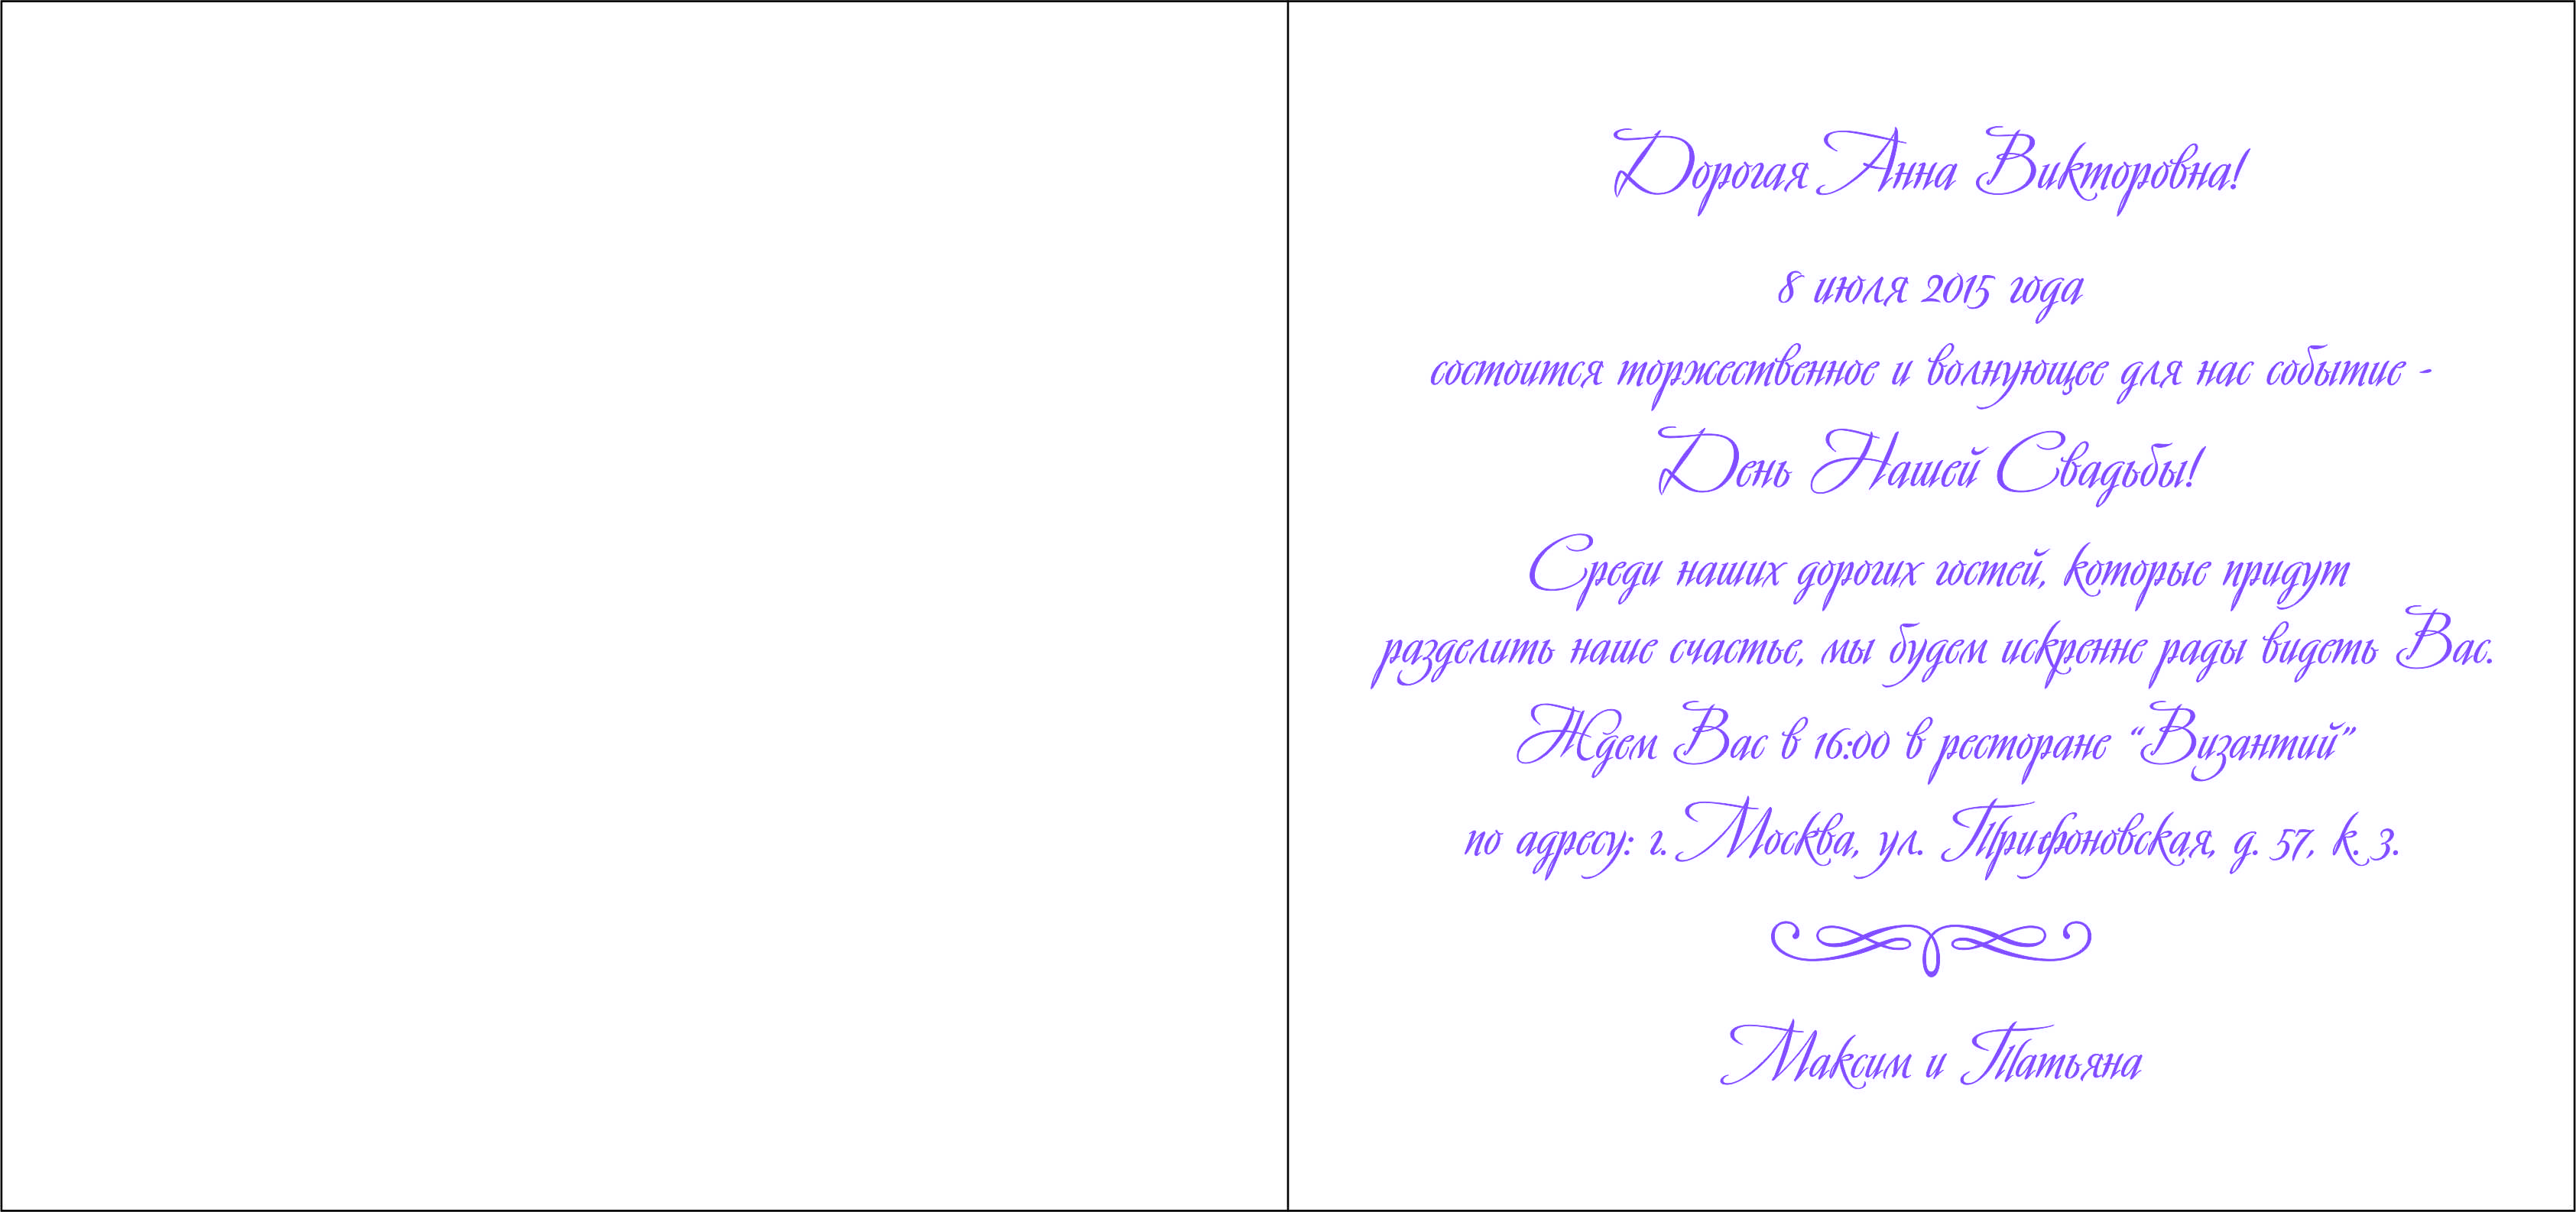 Дорогая Анна Викторовна!
8 июля 2015 года
состоится торжественное и волнующее для нас событие -
День Нашей Свадьбы!
Среди наших дорогих гостей, которые придут
разделить наше счастье, мы будем искренне рады видеть Вас.
Ждем Вас в 16:00 в ресторане “Византий”
по адресу: г. Москва, ул. Трифоновская, д. 57, к. 3.
Максим и Татьяна